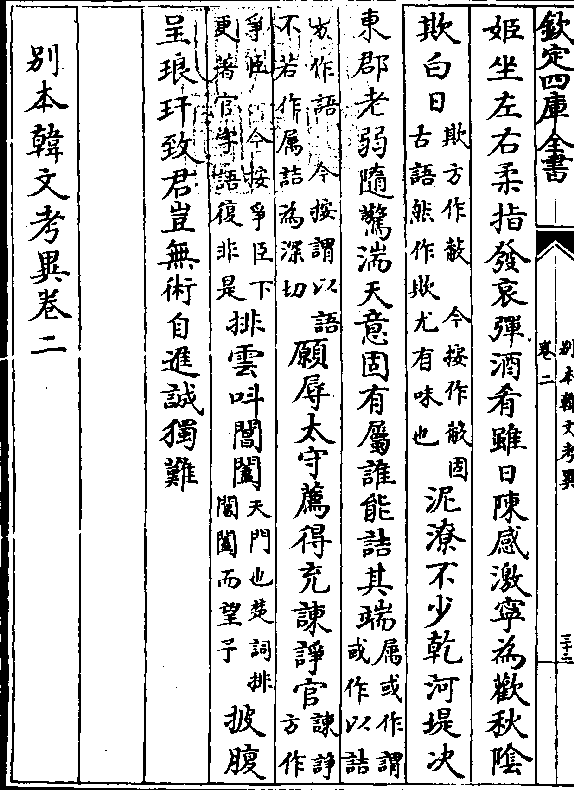 欽定四庫全書
別本韓文考異
卷二
姬坐左右柔指發哀彈酒肴雖日陳感激寧為歡秋陰
欺白日欺方作蔽 今按作蔽固古語然作欺尤有味也泥潦不少乾河堤決
東郡老弱隨驚湍天意固有屬誰能詰其端属或作謂或作以詰
方作語 今按謂以語不若作属詰為深切願辱太守薦得充諫諍官諫諍方作
爭臣 今按爭臣下更著官字語復非是排雲叫閶闔天門也楚詞排閶闔而望予披腹
呈琅玕致君豈無術自進誠獨難
別本韓文考異卷二